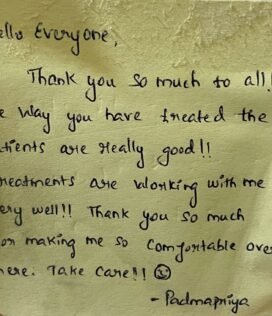 ello Everyone,
Thank you so much to all!
e way you have treated the
tients are really good!!
reatments are working with me
ery well!! Thank you so much
or making me so comfortable over
here. Take Care!! ☺
- Padmapriya